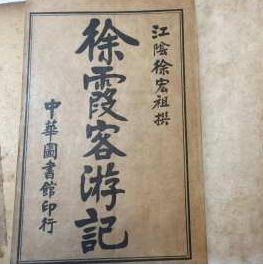 江陰徐宏祖撰
徐霞客游記
中華圖書館印行